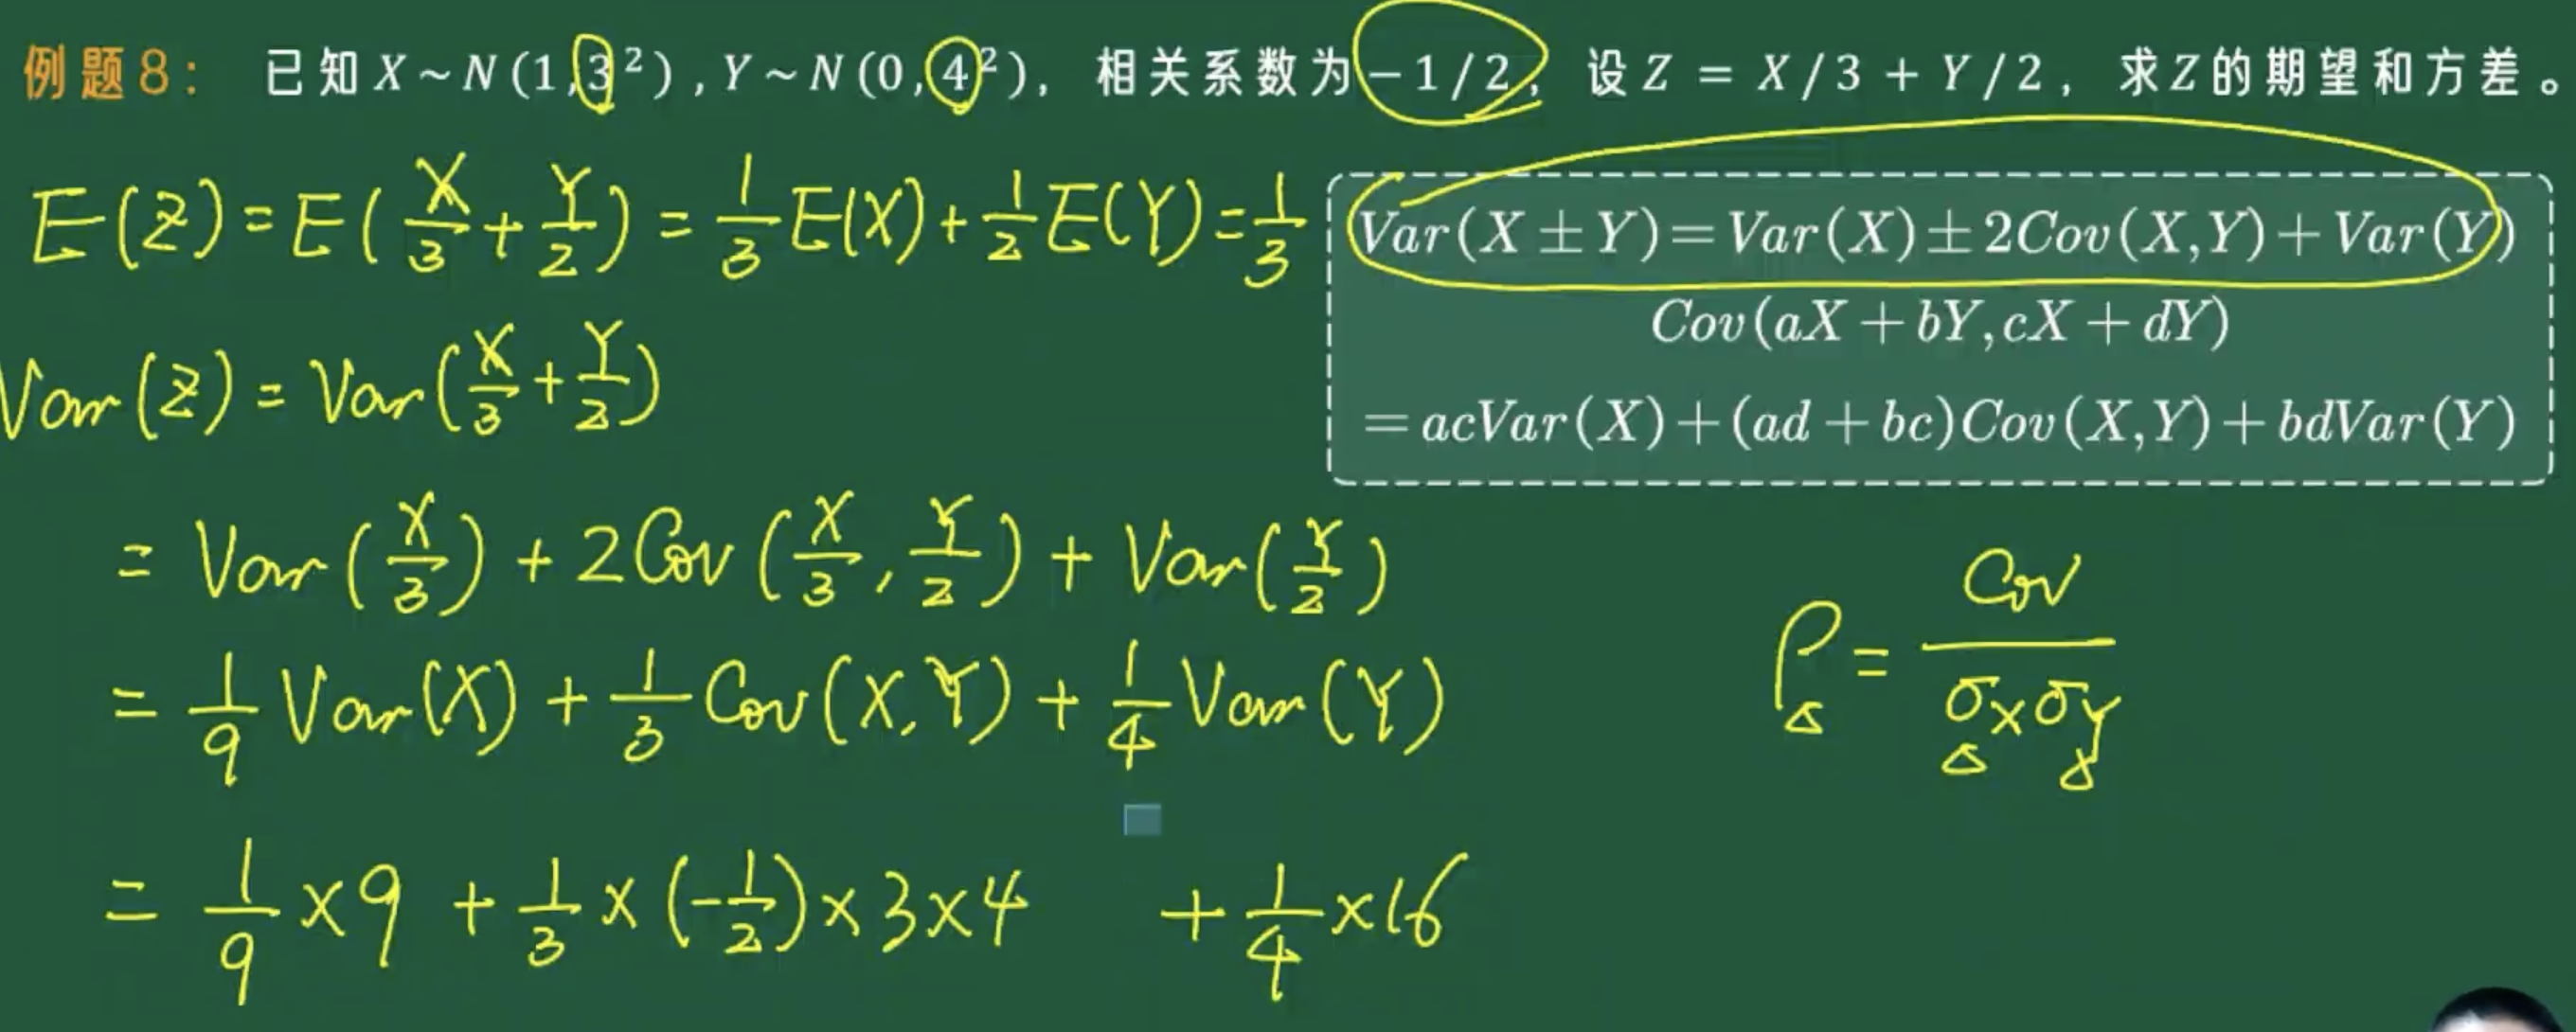 例题8： 已知 X ~ N(1,3²), Y ~ N(0,4²), 相关系数为 -1/2, 设 Z = X/3 + Y/2, 求Z的期望和方差。
E(Z) = E(X/3 + Y/2) = 1/3 E(X) + 1/2 E(Y) = 1/3
Var(X ± Y) = Var(X) ± 2Cov(X,Y) + Var(Y)
Cov(aX + bY, cX + dY)
= acVar(X) + (ad + bc)Cov(X,Y) + bdVar(Y)
Var(Z) = Var(X/3 + Y/2)
= Var(X/3) + 2Cov(X/3, Y/2) + Var(Y/2)
= 1/9 Var(X) + 1/3 Cov(X,Y) + 1/4 Var(Y)
ρ = Cov / σXσY
= 1/9 × 9 + 1/3 × (-1/2) × 3 × 4 + 1/4 × 16